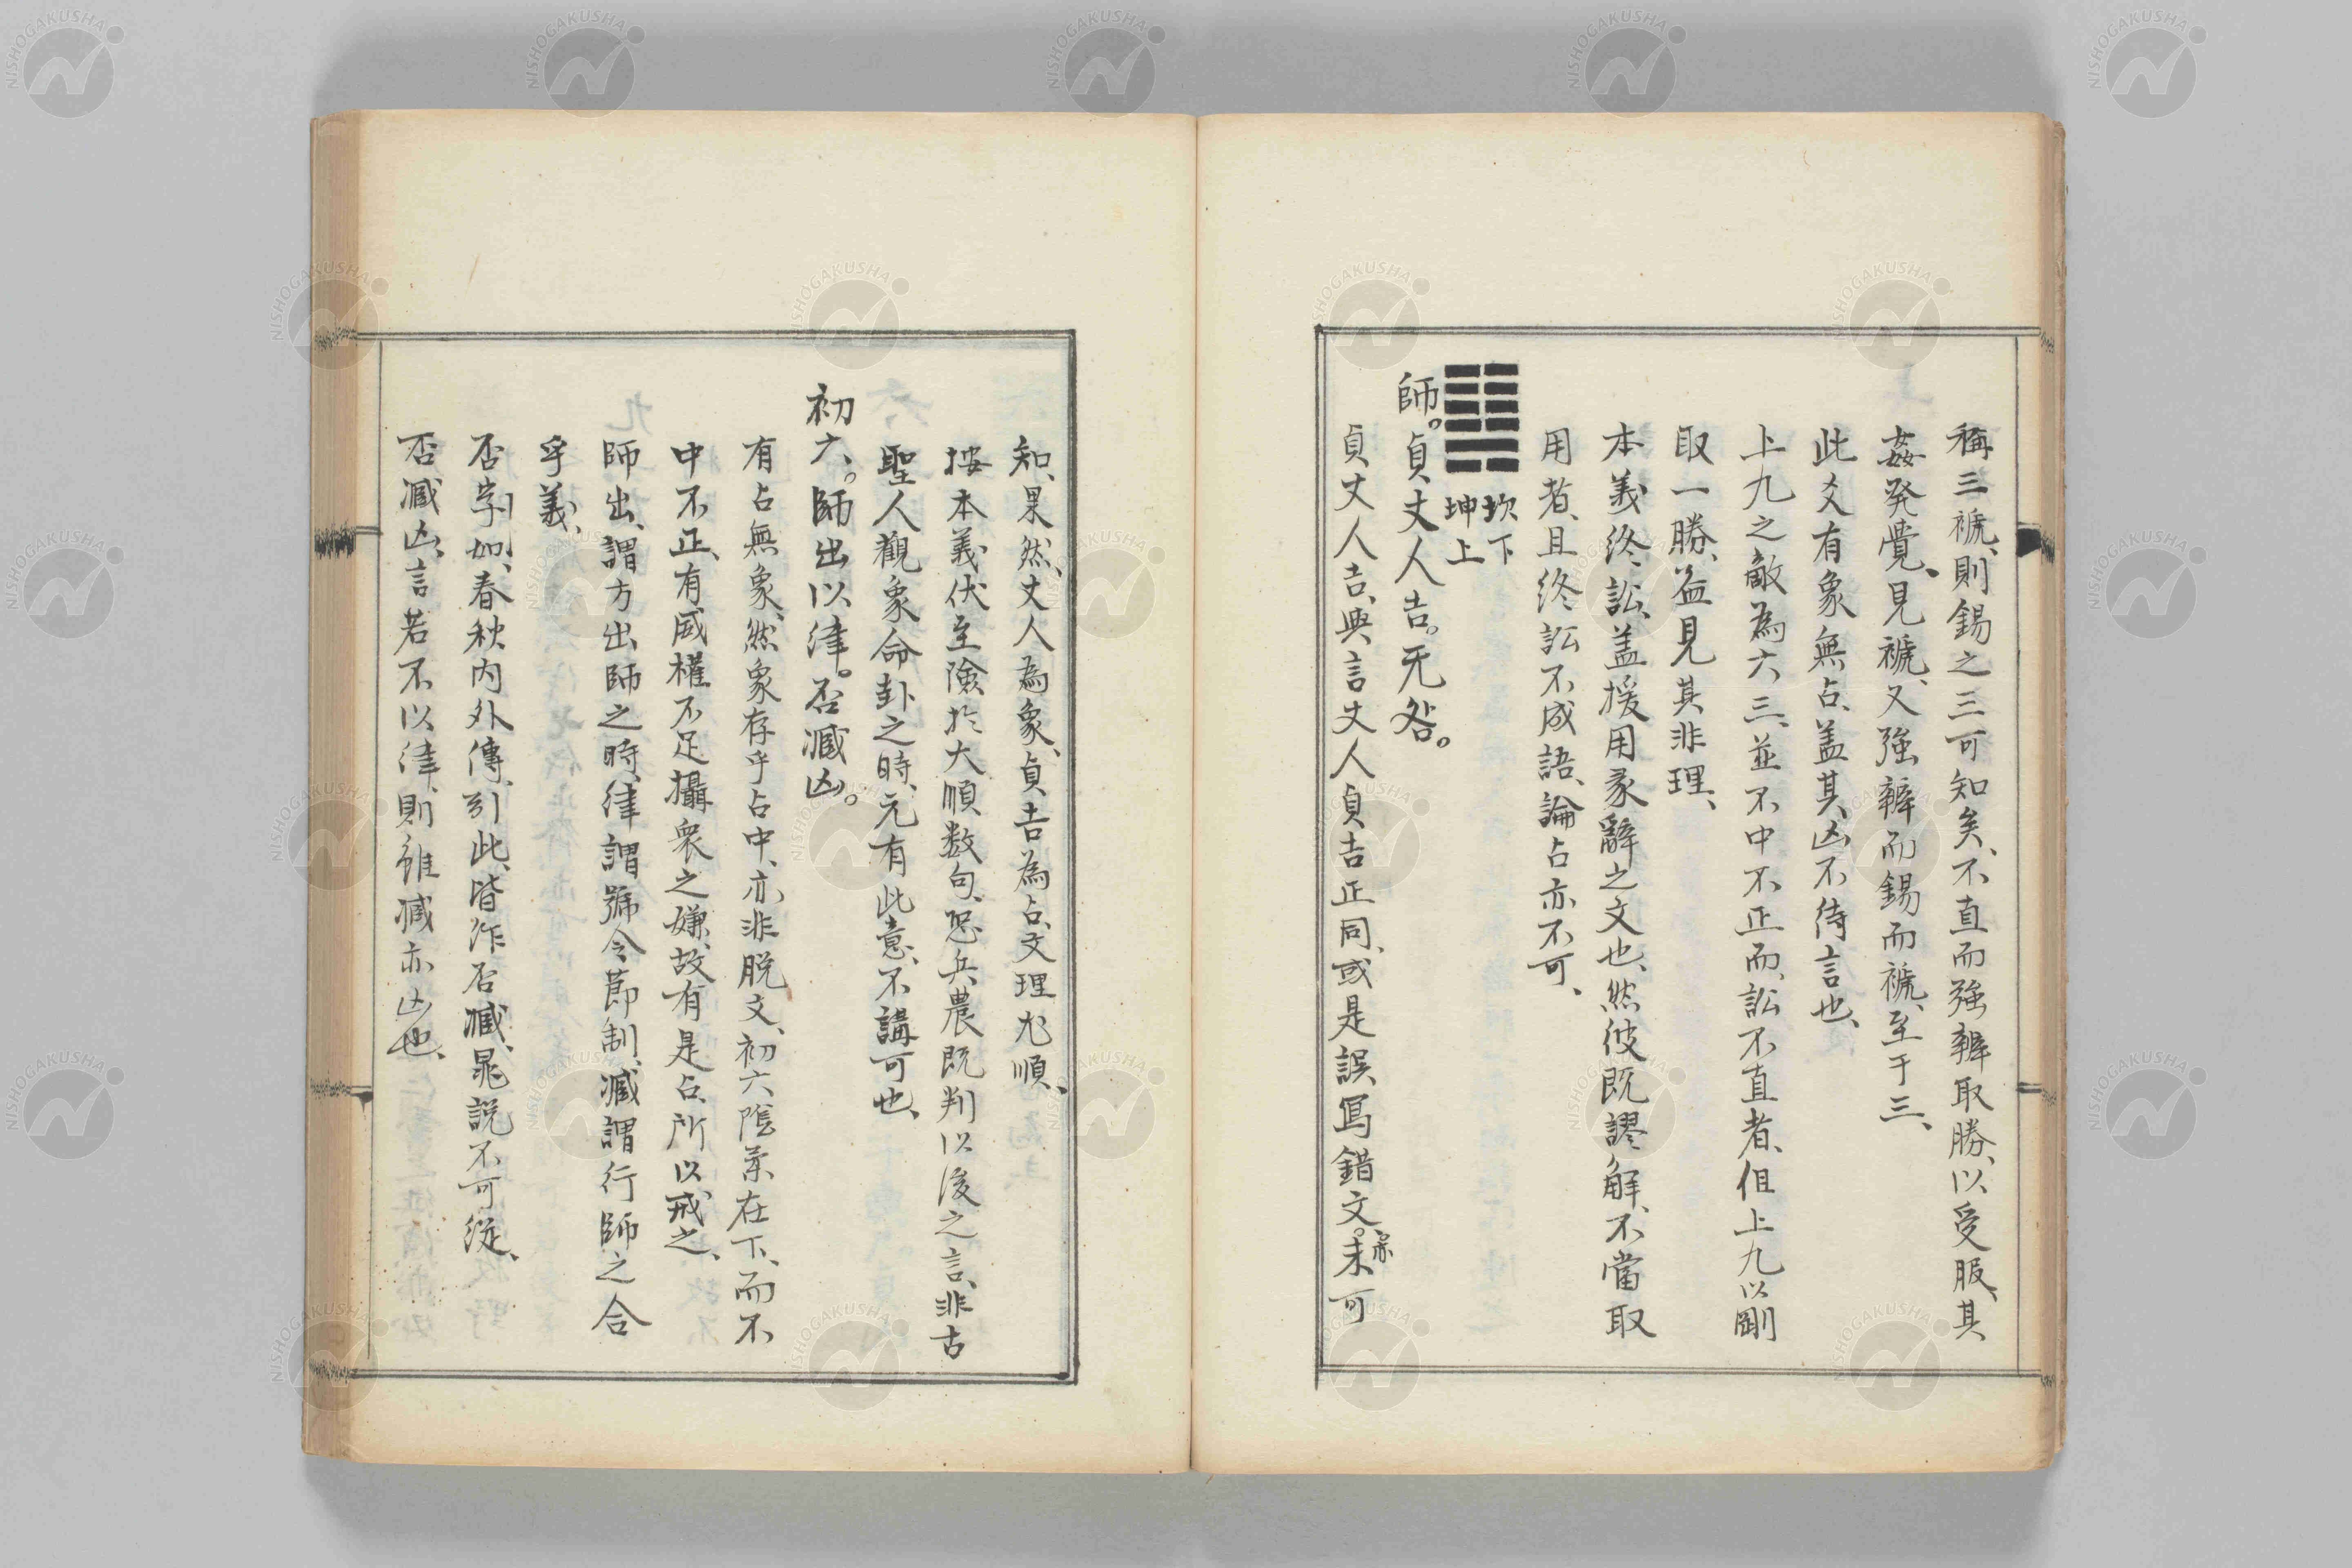 稱三褫、則錫之三可知矣、不直而强辯取勝、以受服、其
姦発覺、見褫、又强辯而錫而褫、至于三、
此爻有象無占、盖其凶不待言也、
上九之敵為六三、並不中不正而、訟不直者、但上九以剛
取一勝、益見其非理、
本義終訟、盖援用彖辭之文也、然彼既謬解、不當取
用者、且終訟不成語、論占亦不可、
坎下
坤上
師。貞丈人吉。无咎。
貞丈人吉、與言丈人貞吉正同、或是誤寫錯文。亦未可
知、果然、丈人為象、貞吉為占、文理尤順、
按本義伏至險於大順数句、恐兵農既判以後之言、非古
聖人觀象命卦之時、元有此意、不講可也、
初六。師出以律。否臧凶。
有占無象、然象存乎占中、亦非脱文、初六陰柔在下、而不
中不正、有威權不足攝衆之嫌、故有是占、所以戒之、
師出、謂方出師之時、律謂號令節制、臧謂行師之合
乎義、
否字如、春秋内外傳、引此、皆作否臧、晁説不可從、
否臧凶、言若不以律、則雖臧亦凶也、
NISHOGAKUSHA